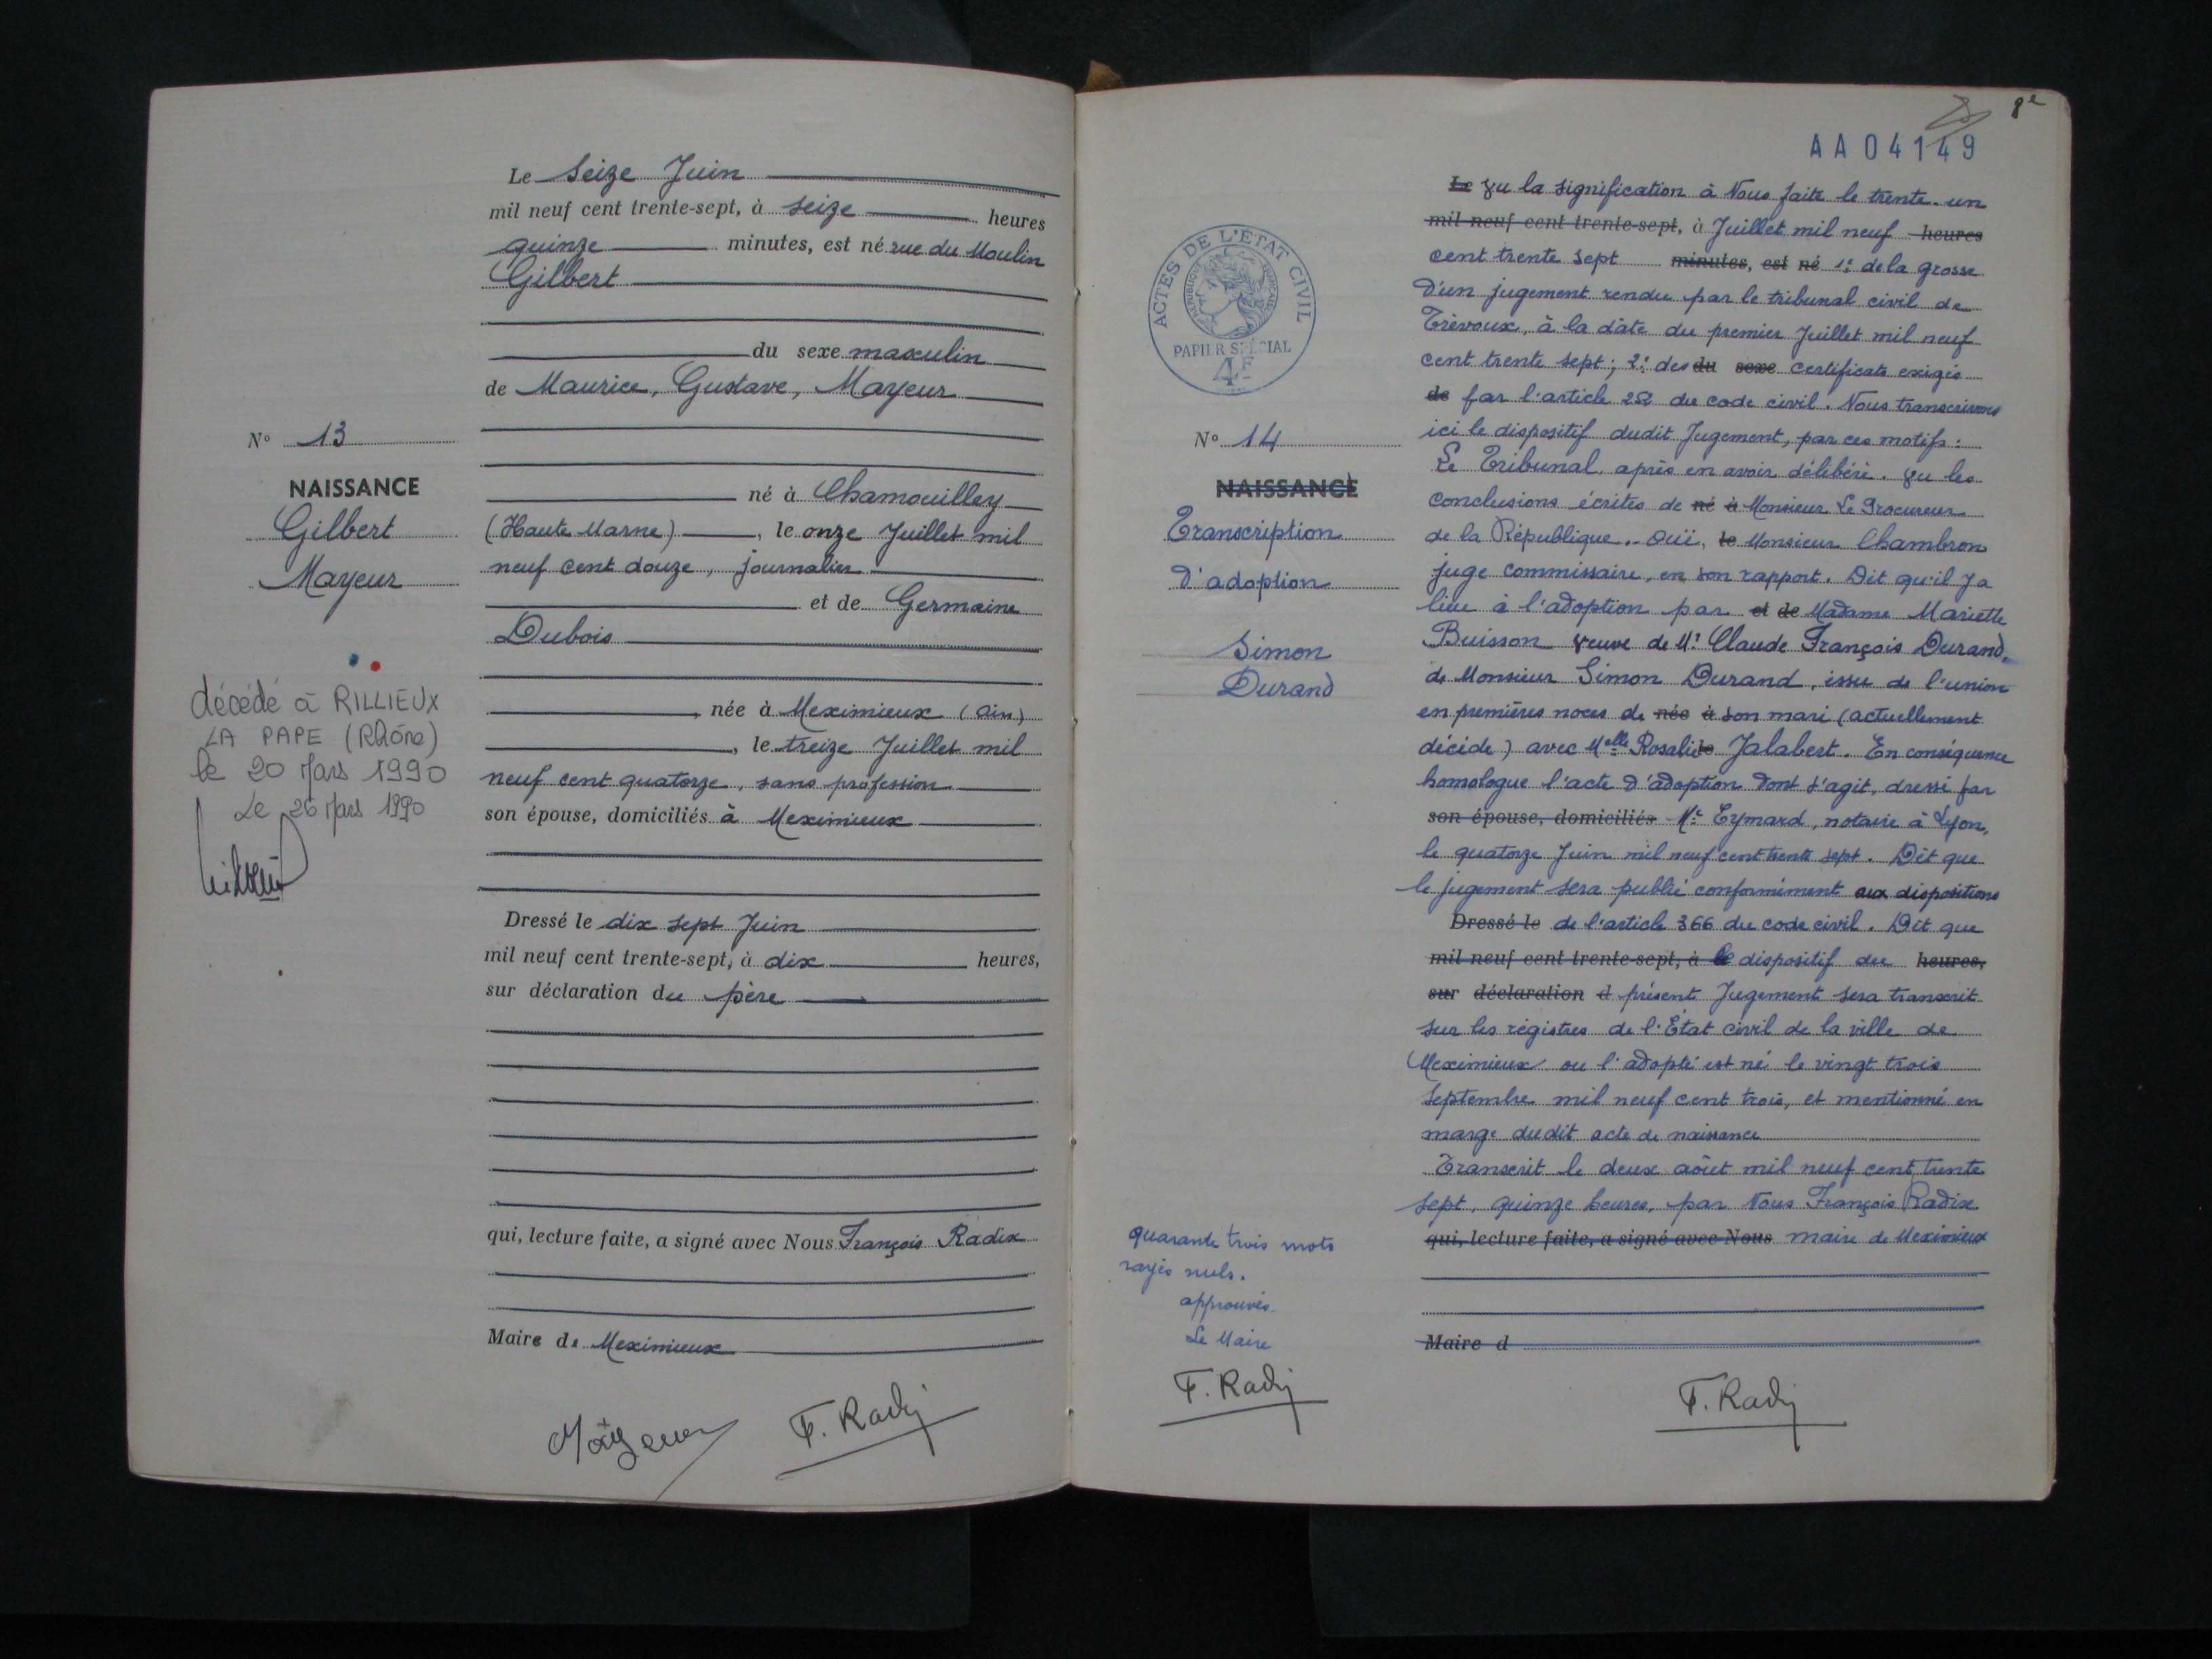 N° 13
NAISSANCE
Gilbert
Mayeur
décédé à RILLIEUX
LA PAPE (Rhône)
le 20 Mars 1990
Le 26 Mars 1990
Le Seize Juin
mil neuf cent trente-sept, à seize heures
quinze minutes, est né rue du Moulin
Gilbert
du sexe masculin
de Maurice, Gustave, Mayeur
né à Chamouilley
(Haute Marne), le onze Juillet mil
neuf cent douze, journalier
et de Germaine
Dubois
née à Meximieux (Ain)
, le treize Juillet mil
neuf cent quatorze, sans profession
son épouse, domiciliés à Meximieux
Dressé le dix sept Juin
mil neuf cent trente-sept, à dix heures,
sur déclaration du père
qui, lecture faite, a signé avec Nous François Radix
Maire de Meximieux
Mayeur F. Radix
8e
AA04149
ACTES DE L'ÉTAT CIVIL
RÉPUBLIQUE FRANÇAISE
PAPIER SPÉCIAL
4F
N° 14
NAISSANCE
Transcription
d'adoption
Simon
Durand
quarante trois mots
rayés nuls.
approuvés.
Le Maire
F. Radix
Le Vu la signification à Nous faite le trente-un
mil neuf cent trente-sept, à Juillet mil neuf heures
cent trente sept minutes, est né 1° de la grosse
d'un jugement rendu par le tribunal civil de
Trévoux, à la date du premier Juillet mil neuf
cent trente sept; 2° des du sexe certificats exigés
de par l'article 252 du code civil. Nous transcrivons
ici le dispositif dudit Jugement, par ces motifs:
Le Tribunal après en avoir délibéré. Vu les
conclusions écrites de né à Monsieur Le Procureur
de la République. Ouï, le Monsieur Chambron
juge commissaire, en son rapport. Dit qu'il y a
lieu à l'adoption par et de Madame Mariette
Buisson veuve de Mr Claude François Durand,
de Monsieur Simon Durand, issu de l'union
en premières noces de née à son mari (actuellement
décédé) avec Melle Rosalie le Jalabert. En conséquence
homologue l'acte d'adoption dont s'agit, dressé par
son épouse, domiciliés Me Eymard, notaire à Lyon,
le quatorze Juin mil neuf cent trente sept. Dit que
le jugement sera publié conformément aux dispositions
Dressé le de l'article 366 du code civil. Dit que
mil neuf cent trente-sept, à le dispositif du heures,
sur déclaration d présent Jugement sera transcrit
sur les régistres de l'État civil de la ville de
Meximieux ou l'adopté est né le vingt trois
Septembre mil neuf cent trois, et mentionné en
marge dudit acte de naissance
Transcrit le deux août mil neuf cent trente
sept, quinze heures, par Nous François Radix
qui, lecture faite, a signé avec Nous maire de Meximieux
Maire d
F. Radix